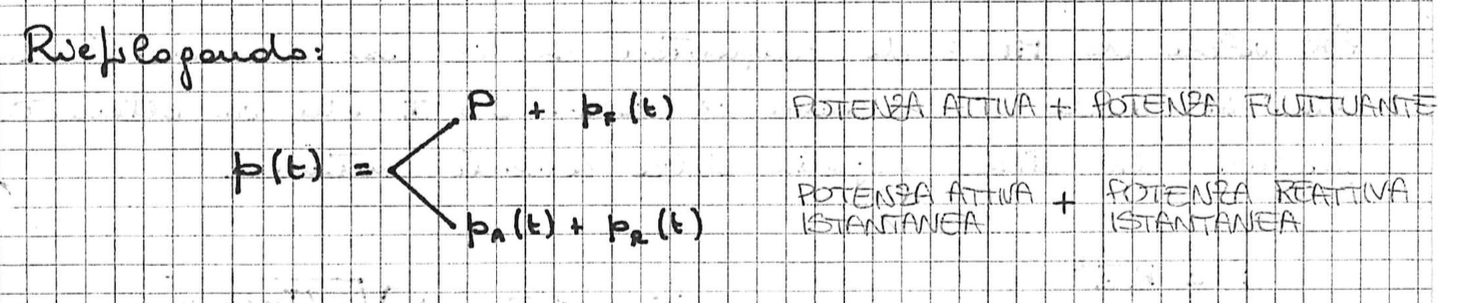 Riepilogando:
P + pF(t) POTENZA ATTIVA + POTENZA FLUTTUANTE
p(t) =
pA(t) + pR(t) POTENZA ATTIVA ISTANTANEA + POTENZA REATTIVA ISTANTANEA